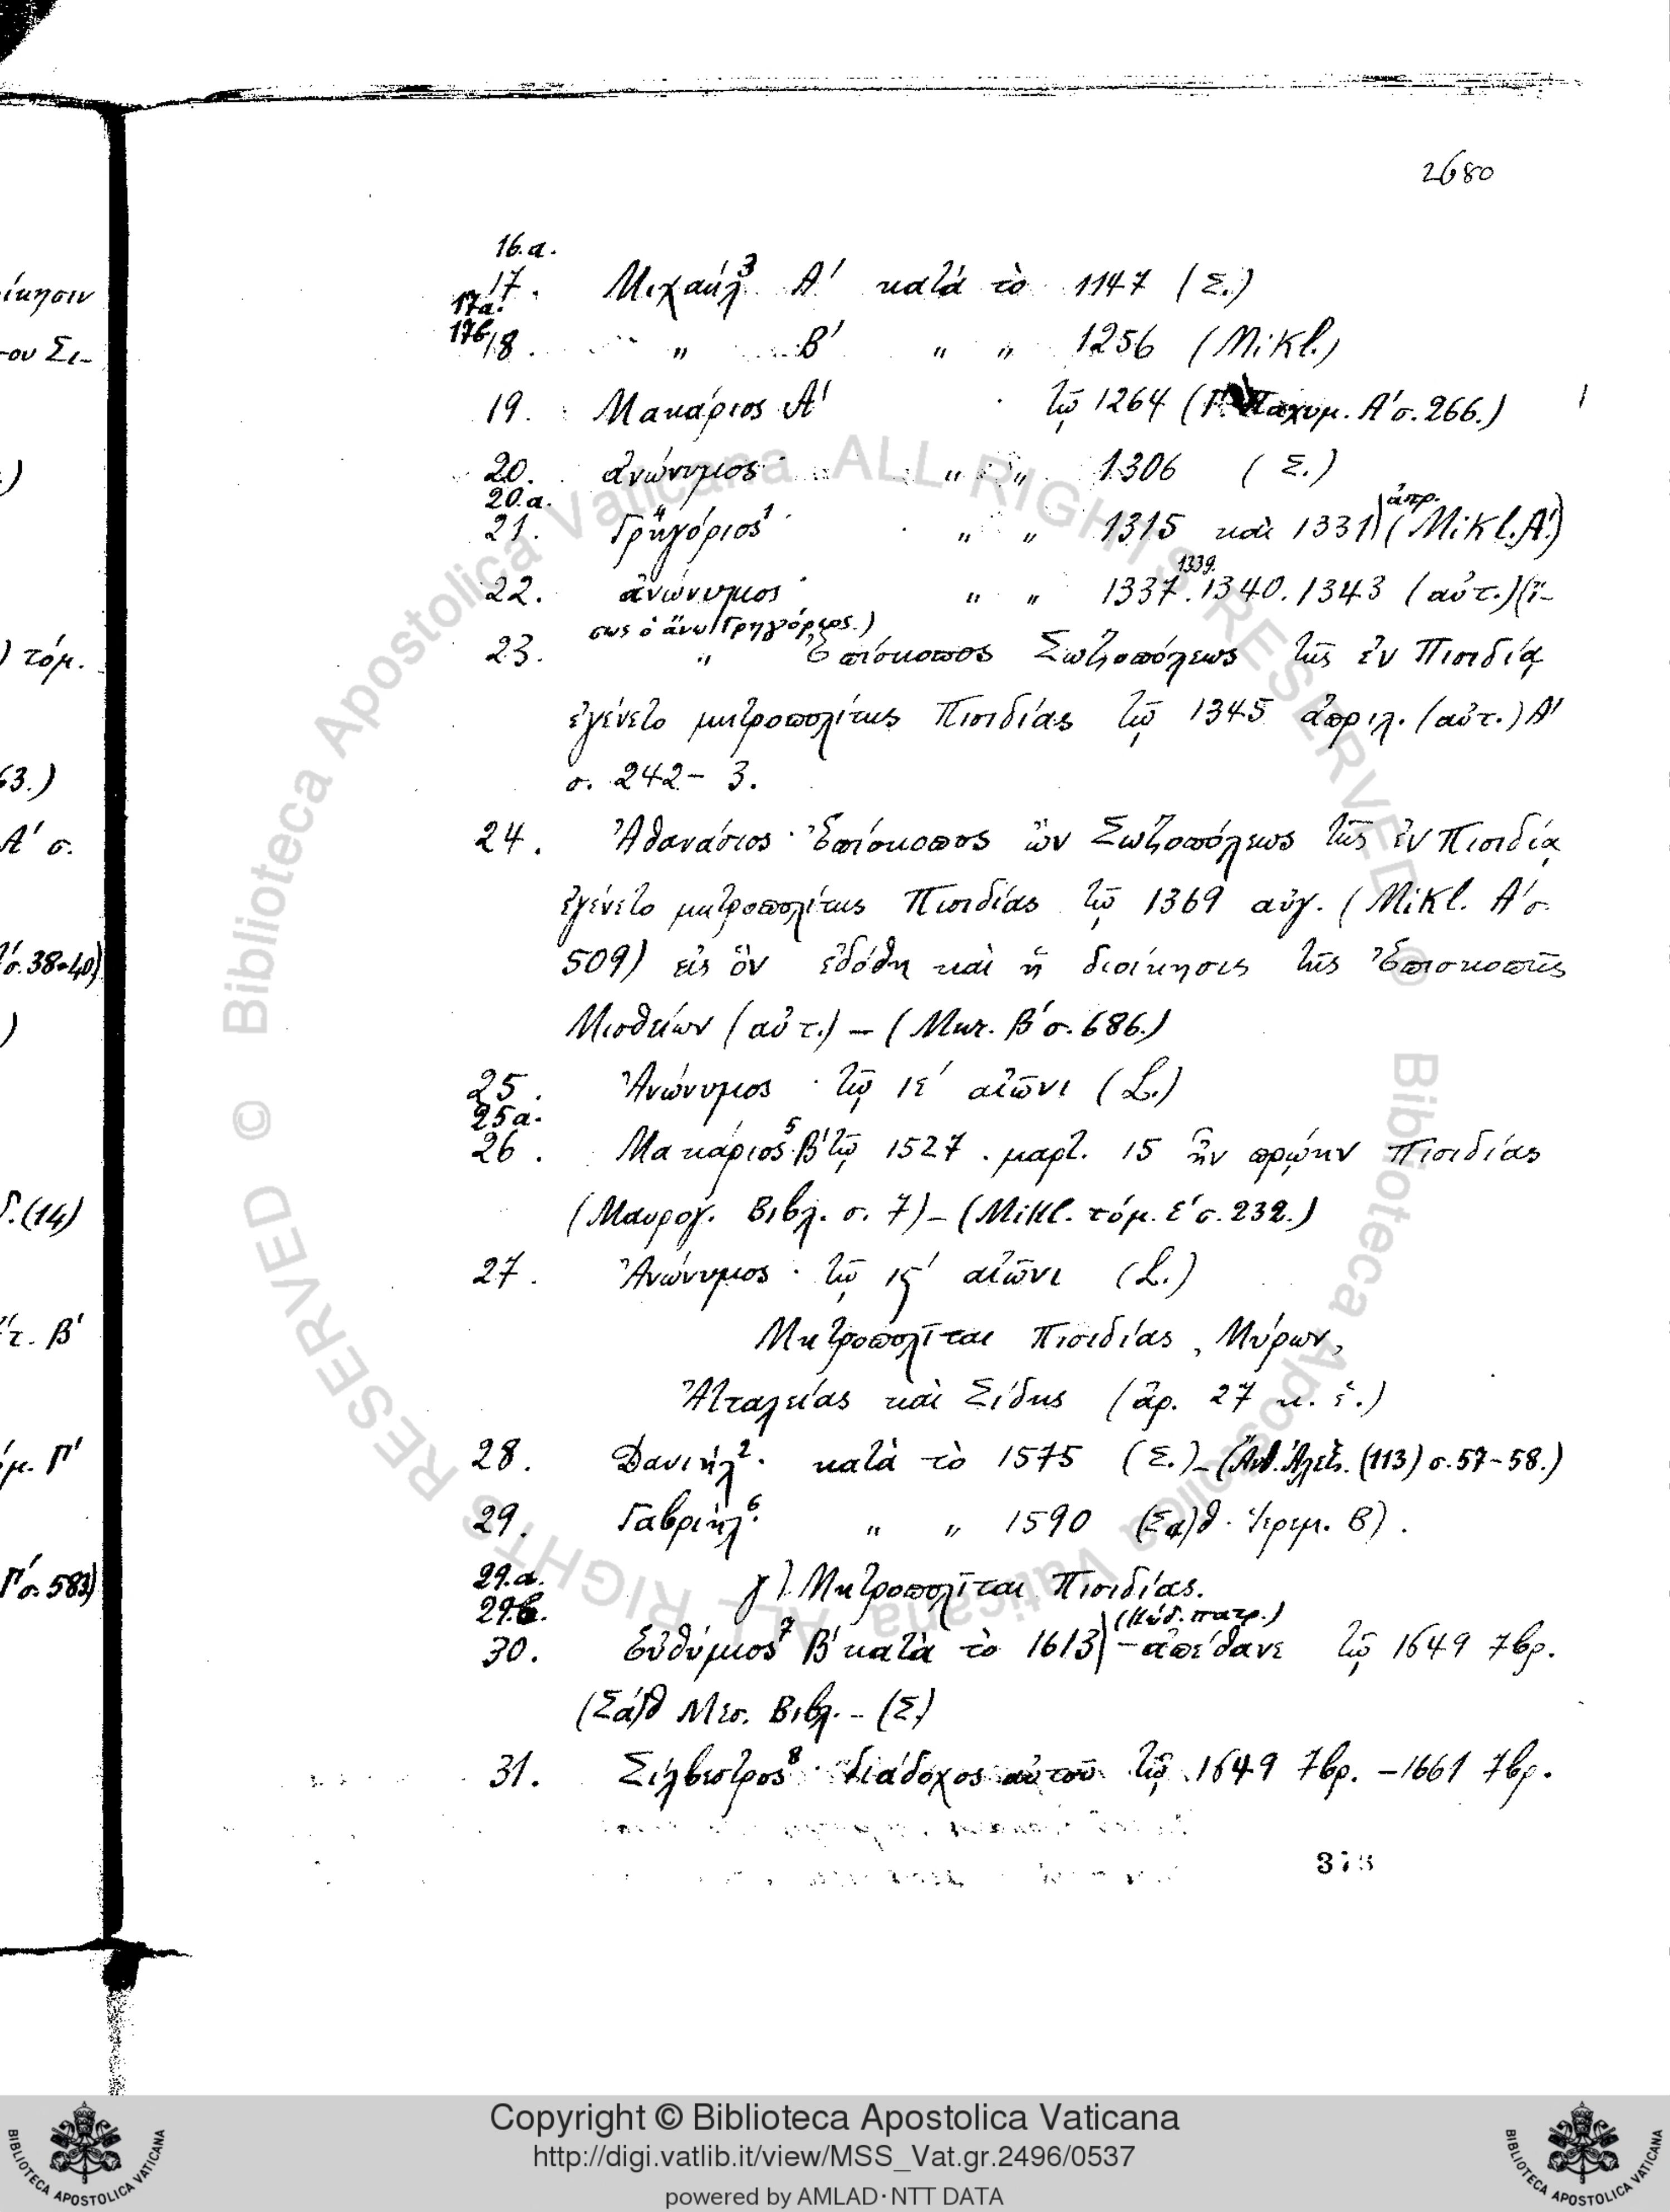 2680
16.α.
17. Μιχαήλ³ Α′ κατά τὸ 1147 (Σ.)
17α.
17β
18. „ Β′ „ „ 1256 (Mikl.)
19. Μακάριος Α′ τῷ 1264 (Γ. Παχυμ. Α′ σ. 266.)
20. ἀνώνυμος „ „ 1306 (Σ.)
20.α.
21. Γρηγόριος⁴ „ „ 1315 καὶ 1331 ἀπρ. (Mikl. Α′.)
22. ἀνώνυμος „ „ 1337. 1339. 1340. 1343 (αὐτ.) (ἴ-
σως ὁ ἄνω Γρηγόριος.)
23. „ Ἐπίσκοπος Σωζοπόλεως τῆς ἐν Πισιδίᾳ
ἐγένετο μητροπολίτης Πισιδίας τῷ 1345 ἀπριλ. (αὐτ.) Α′
σ. 242 - 3.
24. Ἀθανάσιος · Ἐπίσκοπος ὢν Σωζοπόλεως τῆς ἐν Πισιδίᾳ
ἐγένετο μητροπολίτης Πισιδίας τῷ 1369 αὐγ. (Mikl. Α′ σ.
509) εἰς ὃν ἐδόθη καὶ ἡ διοίκησις τῆς Ἐπισκοπῆς
Μισθείων (αὐτ.) – (Μικ. Β′ σ. 686.)
25. Ἀνώνυμος · τῷ ιε′ αἰῶνι (L.)
25α.
26. Μακάριος⁵ Β′ τῷ 1527. μαρτ. 15 ἦν πρῴην Πισιδίας
(Μαυρογ. Βιβλ. σ. 7) – (Mikl. τόμ. Ε′ σ. 232.)
27. Ἀνώνυμος · τῷ ις′ αἰῶνι (L.)
Μητροπολῖται Πισιδίας, Μύρων,
Ἀτταλείας καὶ Σίδης (ἀρ. 27 κ. ἑ.)
28. Δανιήλ². κατὰ τὸ 1575 (Σ.) – (Ἀνθ. Ἀλεξ. (113) σ. 57-58.)
29. Γαβριήλ⁶. „ „ 1590 (Σάθ. Ἱερεμ. Β).
29.α.
29.β.
γ) Μητροπολῖται Πισιδίας.
30. Εὐθύμιος⁷ Β′ κατὰ τὸ 1613 (Κώδ. πατρ.) – ἀπέθανε τῷ 1649 7βρ.
(Σάθ Μεσ. Βιβλ. – (Σ.)
31. Σίλβεστρος⁸ · διάδοχος αὐτοῦ τῷ 1649 7βρ. – 1661 7βρ.
ίκησιν
ου Σι-
) τόμ.
63.)
Α′ σ.
σ. 38-40)
(14)
τ. Β′
μ. Γ′
Γ′ σ. 583)
© Biblioteca Apostolica Vaticana ALL RIGHTS RESERVED
© Biblioteca Apostolica Vaticana ALL RIGHTS RESERVED
Copyright © Biblioteca Apostolica Vaticana
http://digi.vatlib.it/view/MSS_Vat.gr.2496/0537
powered by AMLAD·NTT DATA
BIBLIOTECA APOSTOLICA VATICANA
BIBLIOTECA APOSTOLICA VATICANA